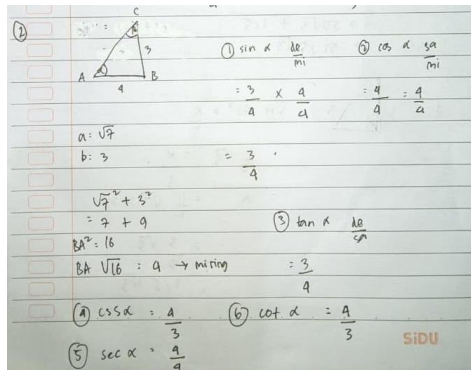 ②
C
α
3
A
α
B
4
① sin α de/mi
= 3/4 x 4/4
= 3/4
② cos α sa/mi
= 4/4 = 4/4
a = √7
b = 3
√7² + 3²
= 7 + 9
BA² = 16
BA √16 = 4 → miring
③ tan α de/sa
= 3/4
④ cssα = 4/3
⑤ sec α = 4/4
⑥ cot α = 4/3
SiDU